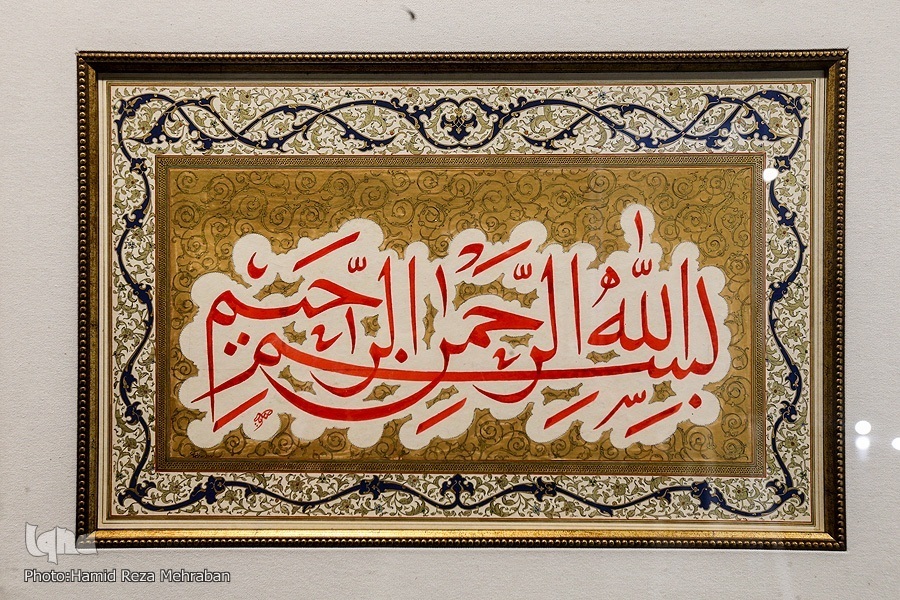 بسم الله الرحمن الرحيم
iqna
Photo:Hamid Reza Mehraban